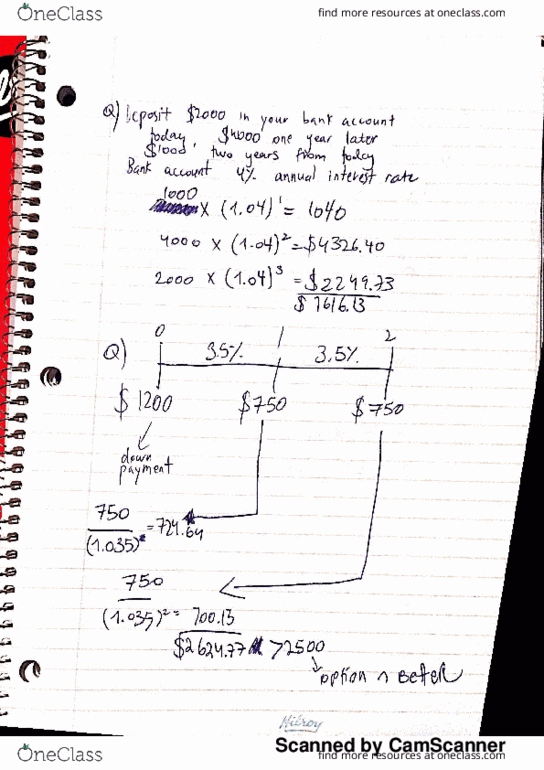 OneClass
find more resources at oneclass.com
Q) Deposit $2000 in your bank account
today $4000 one year later
$1000, two years from today
Bank account 4% annual interest rate
1000
× (1.04)¹ = 1040
4000 × (1.04)² = $4326.40
2000 × (1.04)³ = $2249.73
$7616.13
0 1 2
Q) 3.5% 3.5%
$1200 $750 $750
down
payment
750
= 724.64
(1.035)
750
(1.035)² = 700.13
$2624.77 > 2500
option
Hilroy
Scanned by CamScanner
OneClass
find more resources at oneclass.com